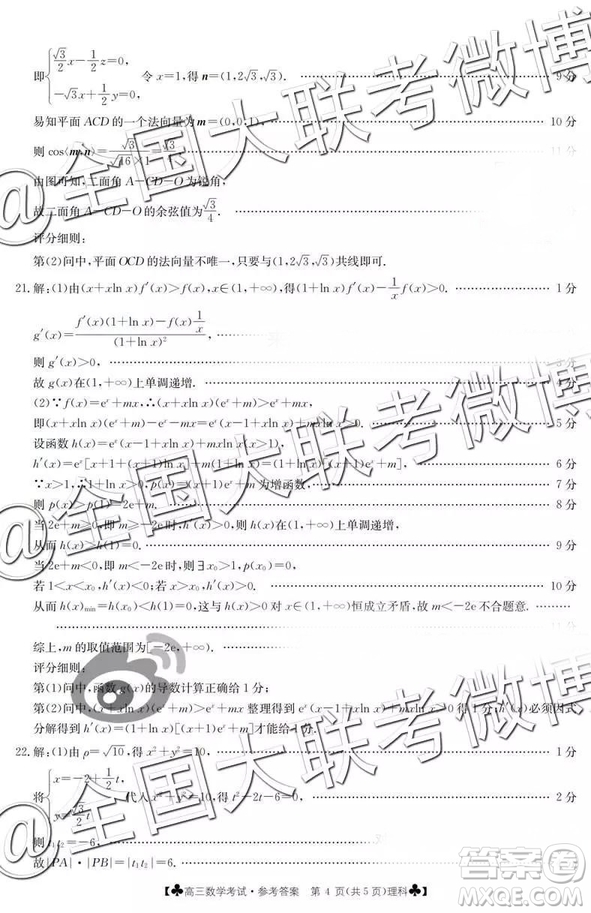 即{√3/2 x-1/2 z=0,
-√3x+1/2 y=0,
令 x=1,得 n=(1,2√3,√3). 9 分
易知平面 ACD 的一个法向量为 m=(0,0,1), 10 分
则 cos⟨m,n⟩=√3/√16×1=√3/4
由图可知,二面角 A-CD-O 为锐角,
故二面角 A-CD-O 的余弦值为√3/4.
评分细则:
第(2)问中,平面 OCD 的法向量不唯一,只要与(1,2√3,√3)共线即可.
21.解:(1)由(x+xln x)f′(x)>f(x),x∈(1,+∞),得(1+ln x)f′(x)-1/x f(x)>0. 1 分
g′(x)=(f′(x)(1+ln x)-f(x)1/x)/(1+ln x)²
则 g′(x)>0, 3 分
故 g(x)在(1,+∞)上单调递增.
(2)∵f(x)=eˣ+mx,∴(x+xln x)(eˣ+m)>eˣ+mx,
即(x+xln x)(eˣ+m)-eˣ-mx>0,即eˣ(x-1+xln x)+mxln x>0. 5 分
设函数 h(x)=eˣ(x-1+xln x)+mxln x(x>1),
h′(x)=eˣ[x+1+(x+1)ln x]+m(1+ln x)=(1+ln x)[(x+1)eˣ+m]. 6 分
∵x>1,∴1+ln x>0,p(x)=(x+1)eˣ+m为增函数, 7 分
则 p(x)>p(1)=2e+m. 8 分
当 2e+m≥0,即 m≥-2e时,h′(x)>0,则h(x)在(1,+∞)上单调递增,
从而 h(x)>h(1)=0. 9 分
当 2e+m<0,即 m<-2e时,则∃x₀>1,h′(x₀)=0,
若 1<x<x₀,h′(x)<0;若 x>x₀,h′(x)>0. 10 分
从而 h(x)min=h(x₀)<h(1)=0,这与 h(x)>0 对 x∈(1,+∞)恒成立矛盾,故 m<-2e 不合题意.
综上,m 的取值范围为[-2e,+∞).
评分细则:
第(1)问中,函数 g(x)的导数计算正确给 1 分;
第(2)问中,将(x+xln x)(eˣ+m)>eˣ+mx 整理得到 eˣ(x-1+xln x)+mxln x>0,给 1 分,h′(x)必须因式
分解得到 h′(x)=(1+ln x)[(x+1)eˣ+m]才能给 1 分.
22.解:(1)由 ρ=√10,得 x²+y²=10, 1 分
将{x=-2+1/2 t,
y=√3/2 t
代入 x²+y²=10,得 t²-2t-6=0, 2 分
则 t₁t₂=-6,
故|PA|·|PB|=|t₁t₂|=6.
♣高三数学考试·参考答案 第 4 页(共 5 页)理科♣
@全国大联考微博
@全国大联考微博
@全国大联考微博
答案圈